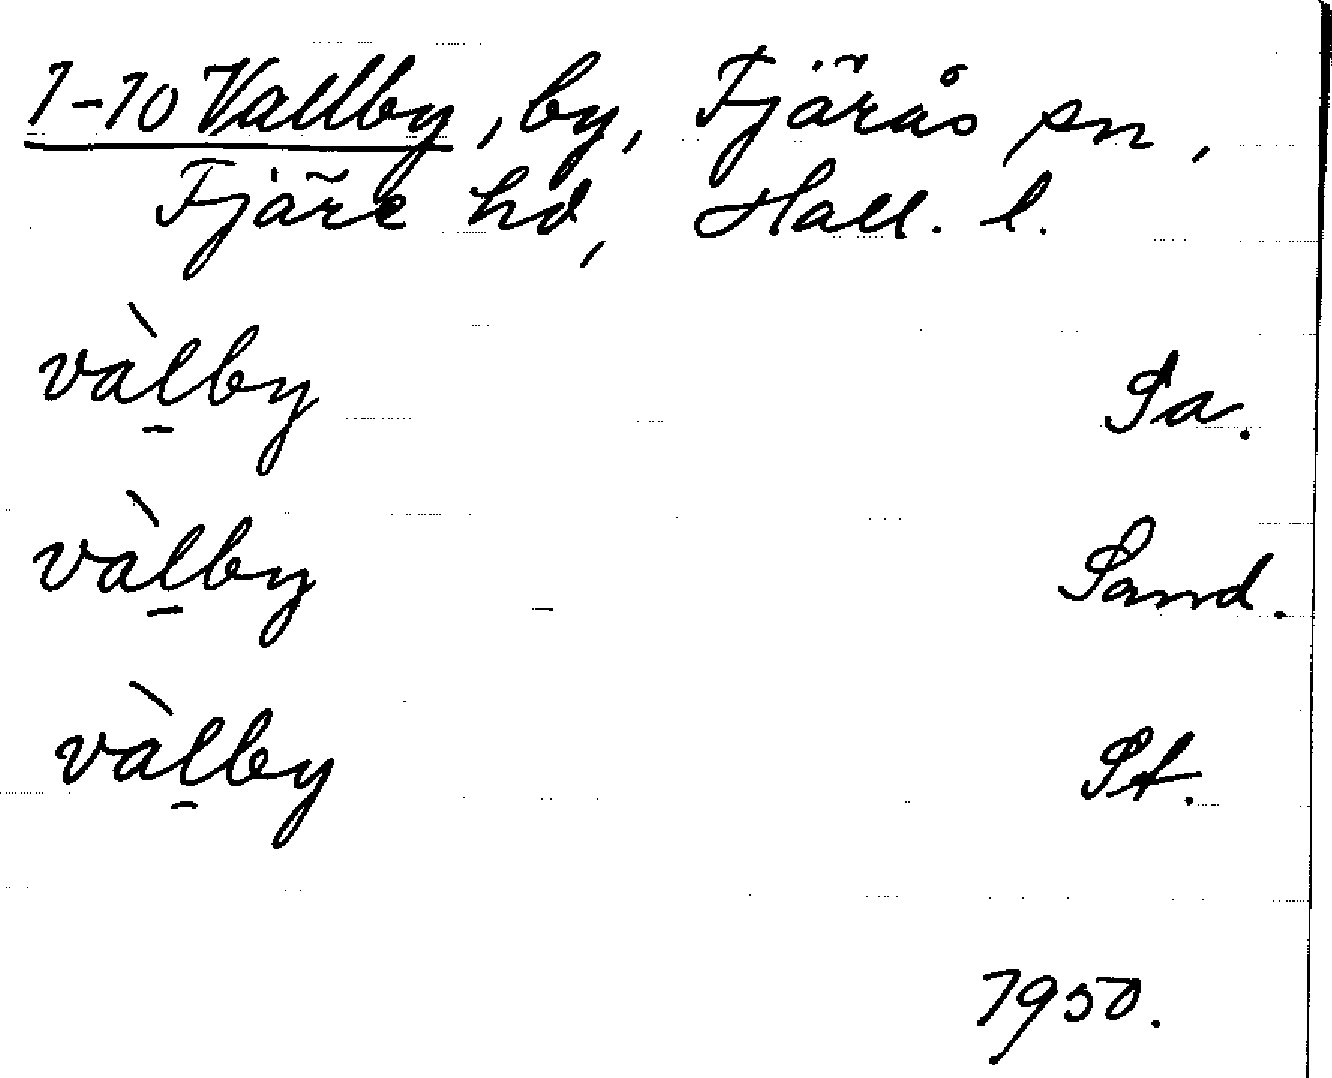 1-10 Vallby, by, Fjärås sn,
Fjäre hd, Hall. l.
vàl̠by Sa.
vàl̠by Sand.
vàl̠by St.
1950.